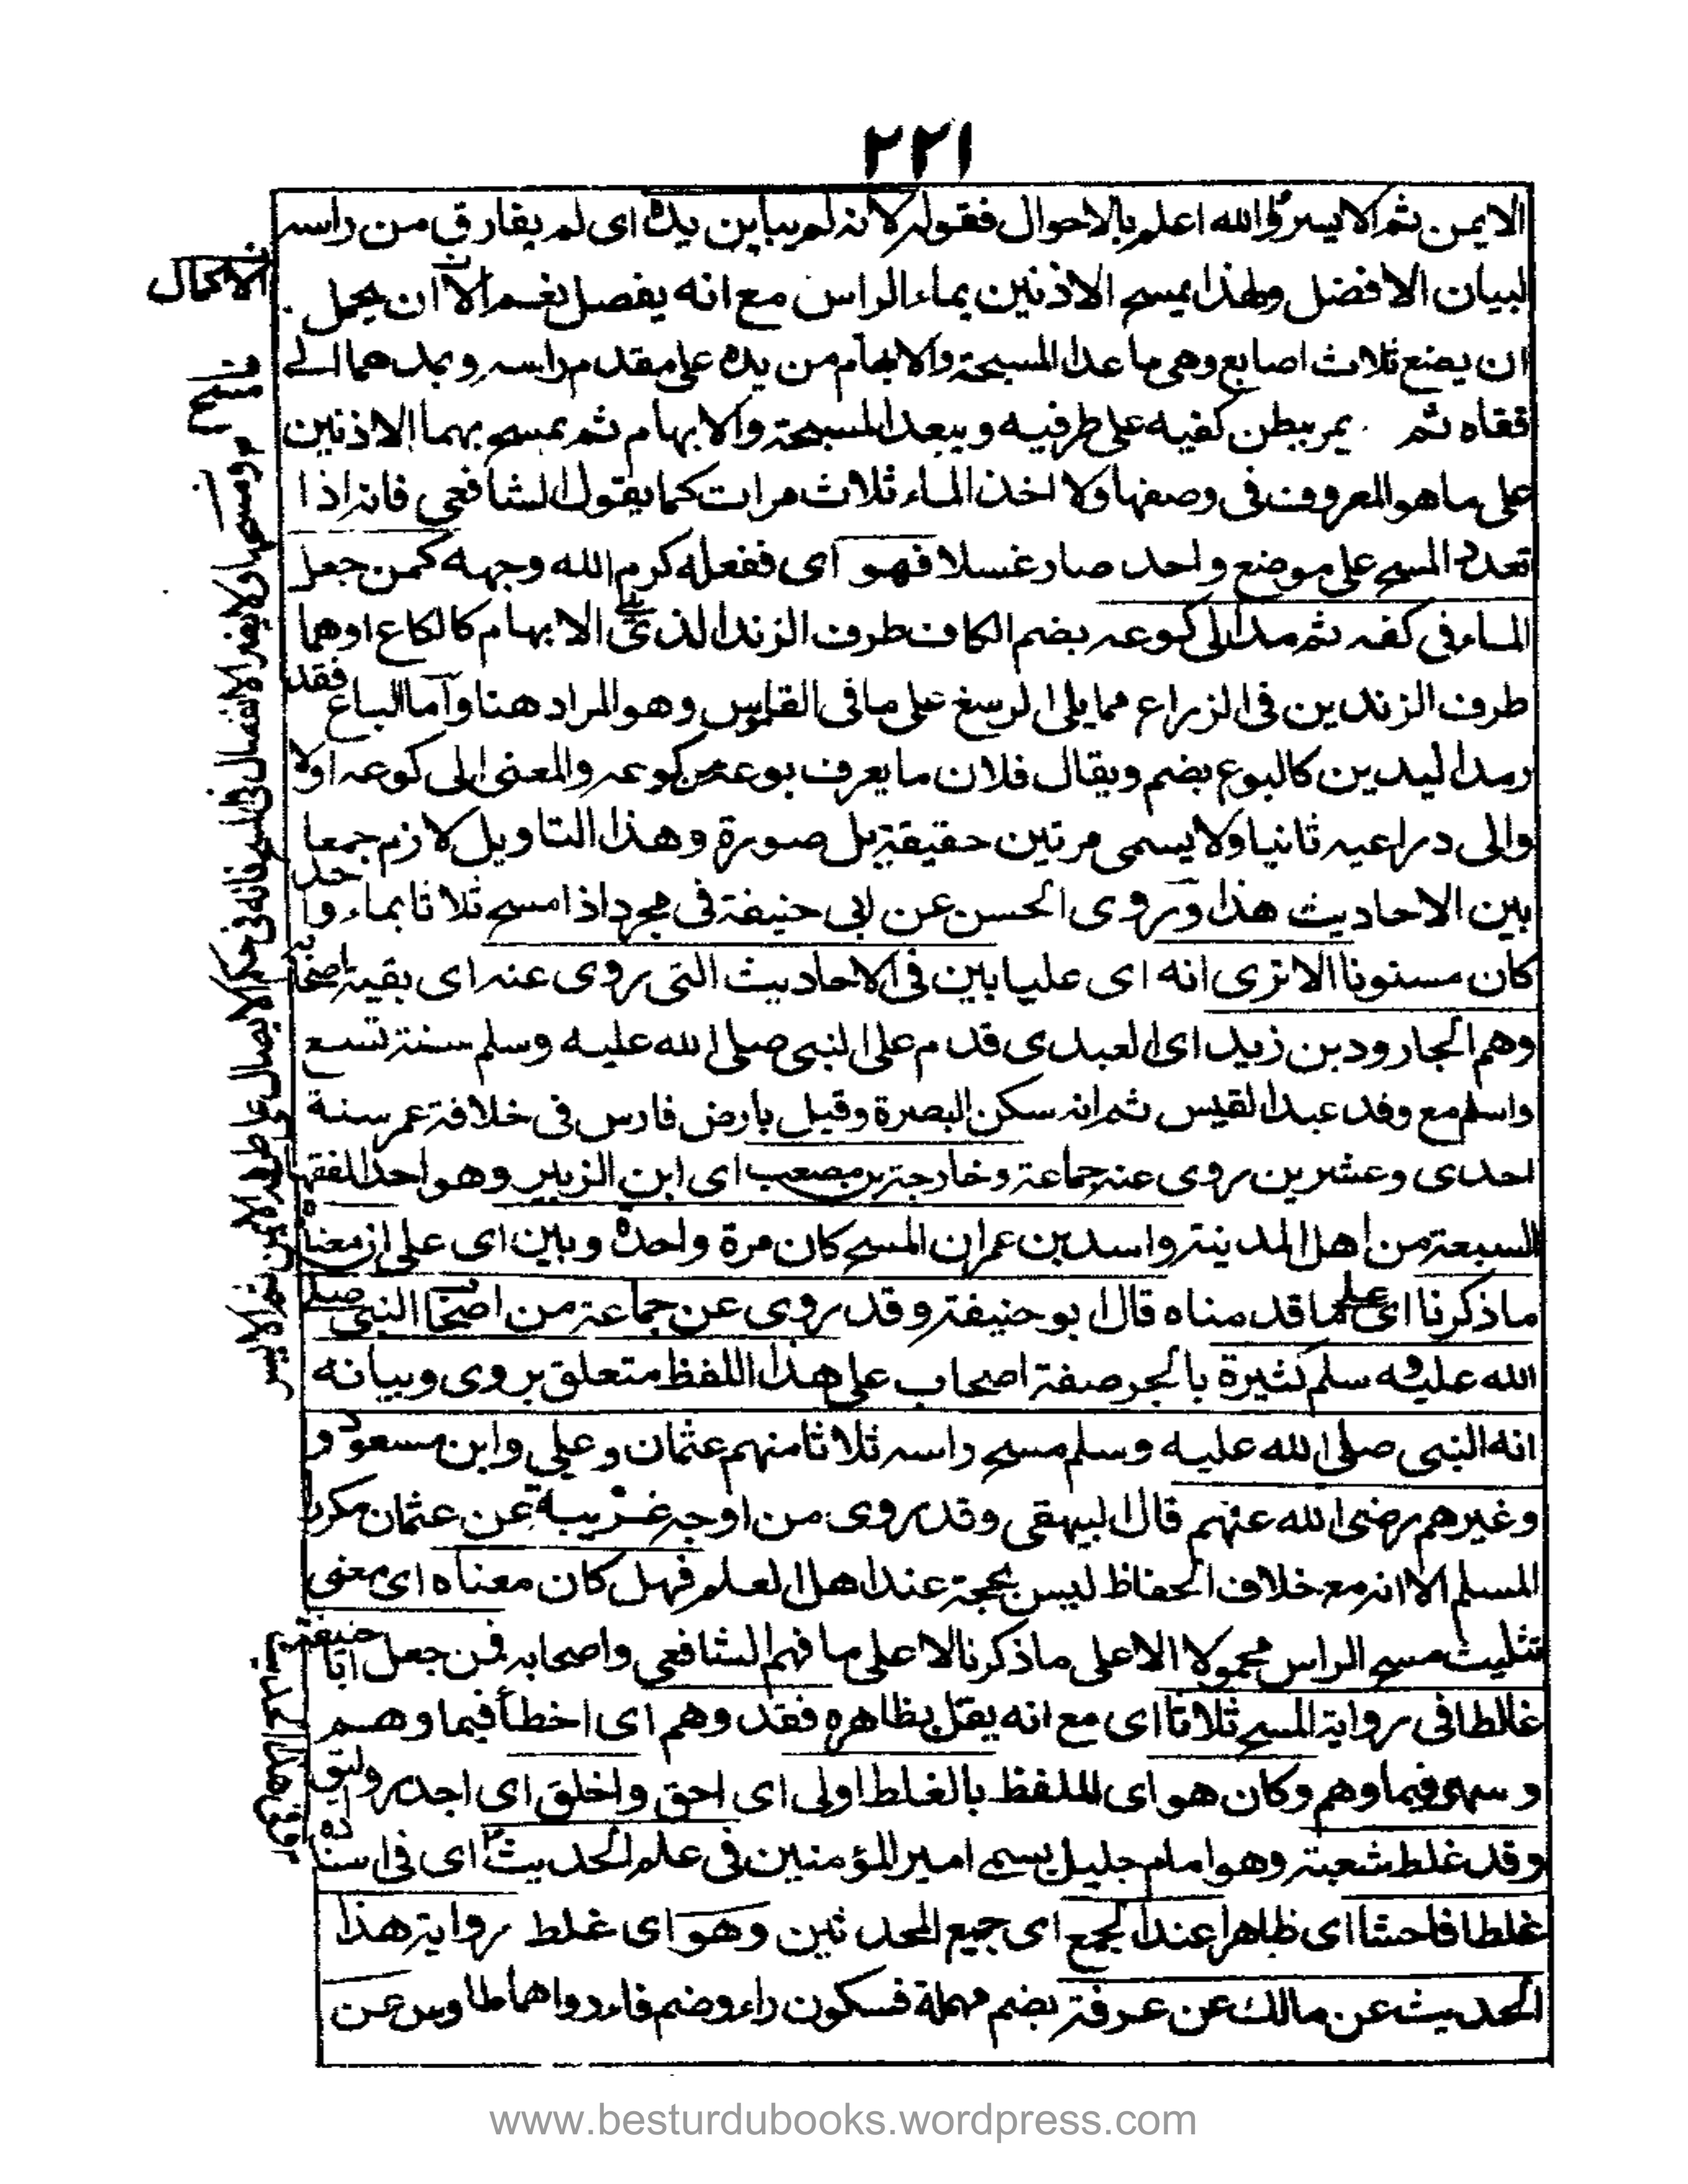 ٢٢١
الايمن ثم الايسر والله اعلم بالاحوال فقوله لانه لم يباين يده اى لم يفارق من راسه
لبيان الافضل ولهذا يمسح الاذنين بماء الراس مع انه يفصل نعم الا ان يحمل
ان يضع ثلاث اصابع وهى ما عدا المسبحة والابهام من يده على مقدم راسه ويمدهما الى
قفاه ثم يمر ببطن كفيه على طرفيه ويبعد المسبحة والابهام ثم يمسح بهما الاذنين
على ما هو المعروف فى وصفها ولا اخذ الماء ثلاث مرات كما يقول الشافعى فانه اذا
تعدد المسح على موضع واحد صار غسلا فهو اى ففعله كرم الله وجهه كمن جعل
الماء فى كفه ثم مدا لى كوعه بضم الكاف طرف الزند الذى يلى الابهام كالكاع اوهما
طرف الزندين فى الزراع مما يلى الرسغ على ما فى القاموس وهو المراد هنا وآما الباع فقد
رمد اليدين كالبوع بضم ويقال فلان ما يعرف بوعه من كوعه والمعنى الى كوعه اولا
والى دراعيه ثانيا ولا يسمى مرتين حقيقة بل صورة وهذا التاويل لازم جمعا
بين الاحاديث هذا وروى الحسن عن ابى حنيفة فى مجرد اذا مسح ثلاثا بماء واحد
كان مسنونا الا ترى انه اى عليا بين فى الاحاديث التى روى عنه اى بقية اصحابه
وهم الجارود بن زيد اى العبدى قدم على النبى صلى الله عليه وسلم سنة تسع
واسلم مع وفد عبد القيس ثم انه سكن البصرة وقيل بارض فارس فى خلافة عمر سنة
احدى وعشرين روى عنه جماعة وخارجة بن مصعب اى ابن الزبير وهو احد الفقهاء
السبعة من اهل المدينة واسد بن عمر ان المسح كان مرة واحدة وبين اى على ان معناه
ما ذكرنا اى على ما قدمناه قال ابو حنيفة وقد روى عن جماعة من اصحاب النبى صلى
الله عليه وسلم كثيرة بالجر صفة اصحاب على هذا اللفظ متعلق بروى وبيانه
انه النبى صلى الله عليه وسلم مسح راسه ثلاثا منهم عثمان وعلى وابن مسعود و
وغيرهم رضى الله عنهم قال البيهقى وقد روى من اوجه غريبة عن عثمان مكررا
المسلم الا انه مع خلاف الحفاظ ليس بحجة عند اهل العلم فهل كان معناه اى معنى
تثليث مسح الراس محمولا الا على ما ذكرنا لا على ما فهم الشافعى واصحابه فمن جعل ابا حنيفة
غالطا فى رواية المسح ثلاثا اى مع انه يقل بظاهره فقد وهم اى اخطأ فيما وهم
وسهى فيما وهم وكان هو اى الملفظ بالغلط اولى اى احق واخلق اى اجدر وليق
وقد غلط شعبة وهو امام جليل يسمى امير المؤمنين فى علم الحديث اى فى اسناده
غلطا فاحشا اى ظاهرا عند الجمع اى جميع المحدثين وهو اى غلط رواية هذا
الحديث عن مالك عن عرفة بضم مهملة فسكون راء وضم فاء رواهما طاوس عن
الاكمال
مسح
ومسحها ولا يضر الانفصال فى المسح فانه فى حكم الاتصال على طرفه الايمن ثم الايسر
www.besturdubooks.wordpress.com